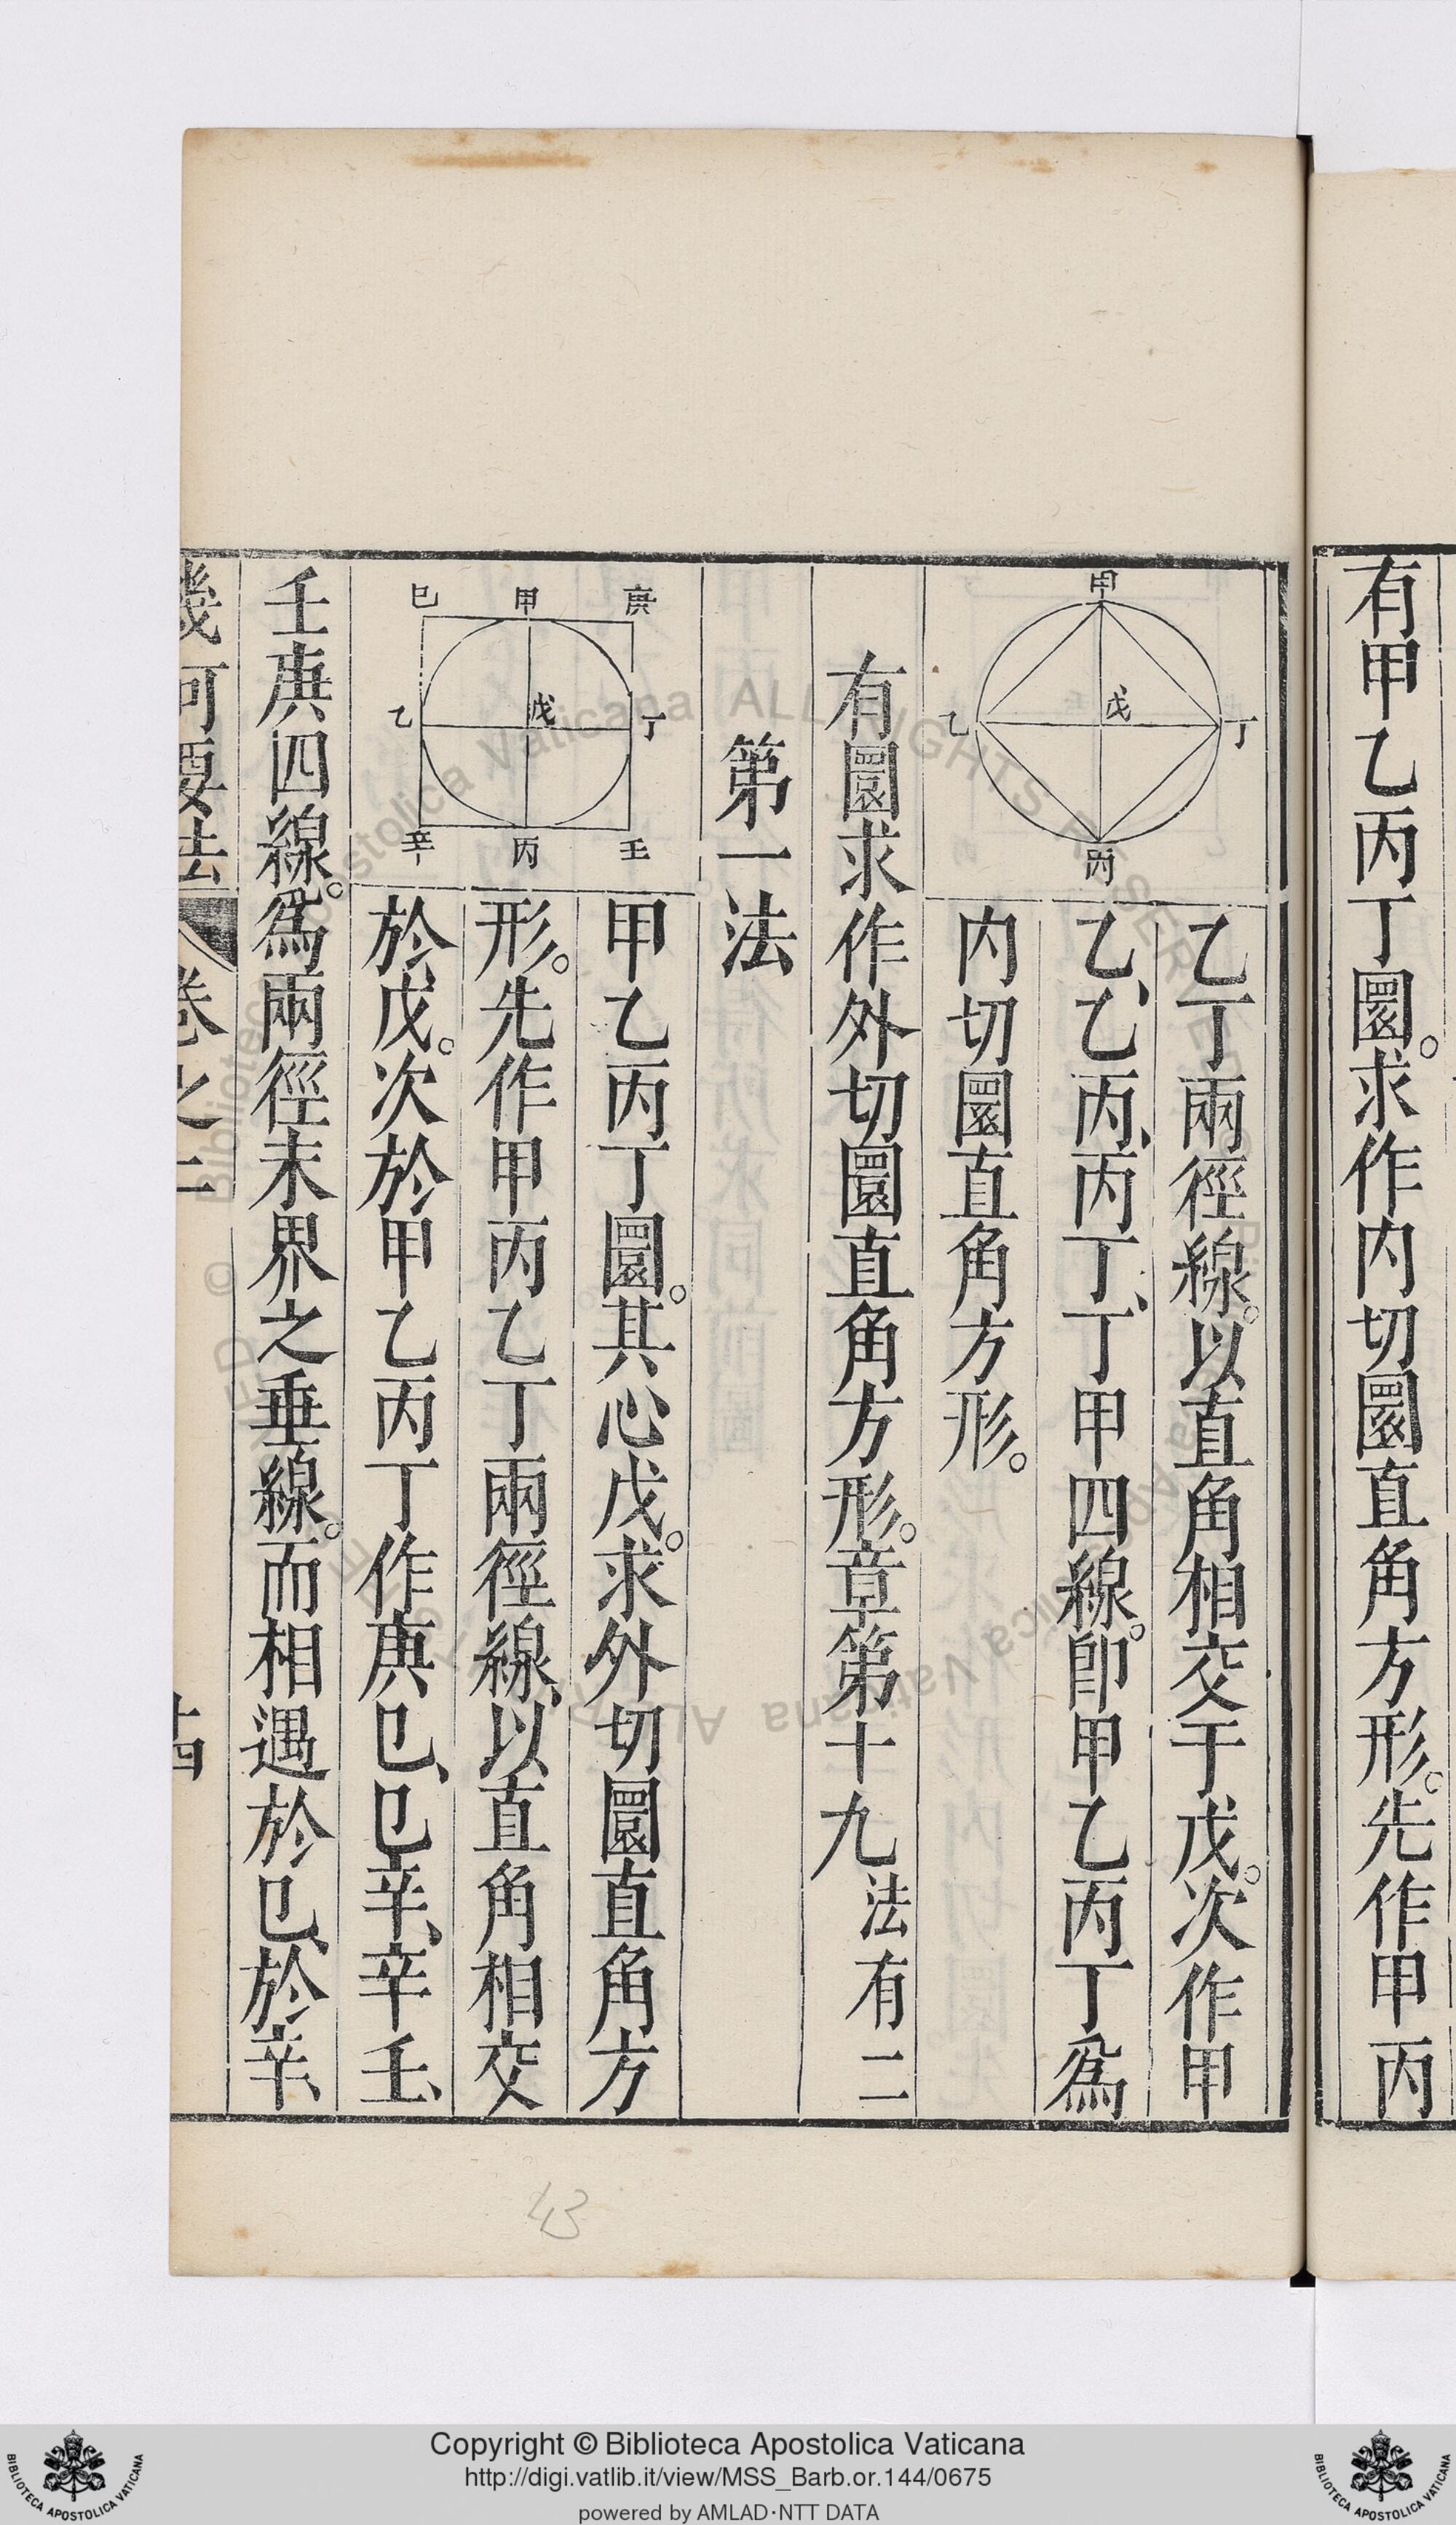 有甲乙丙丁圜。求作内切圜直角方形。先作甲丙
甲
乙
戊
丁
丙
乙丁兩徑線。以直角相交于戊。次作甲
乙、乙丙、丙丁、丁甲四線。卽甲乙丙丁爲
内切圜直角方形。
有圜求作外切圜直角方形。章第十九法有二
第一法
庚
甲
巳
丁
戊
乙
壬
丙
辛
甲乙丙丁圜。其心戊。求外切圜直角方
形。先作甲丙乙丁兩徑線、以直角相交
於戊。次於甲乙丙丁作庚巳、巳辛、辛壬、
壬庚四線。爲兩徑末界之垂線。而相遇於巳、於辛、
幾何要法
卷之二
十四
43
Copyright © Biblioteca Apostolica Vaticana
http://digi.vatlib.it/view/MSS_Barb.or.144/0675
powered by AMLAD·NTT DATA
BIBLIOTECA APOSTOLICA VATICANA
BIBLIOTECA APOSTOLICA VATICANA